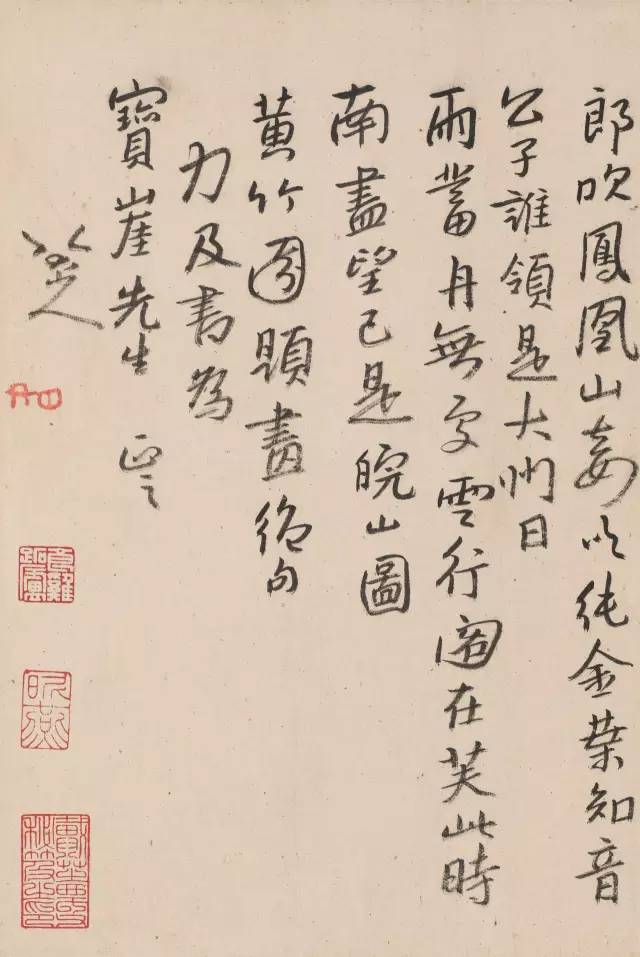 郎吹鳳凰山妾以純金葉知音
公子誰領是大州日
雨蓄舟無處雲行閣在芙此時
南盡望已是皖山圖
黃竹園題畫絕句
力及書為
寶崖先生 正之
八大山人